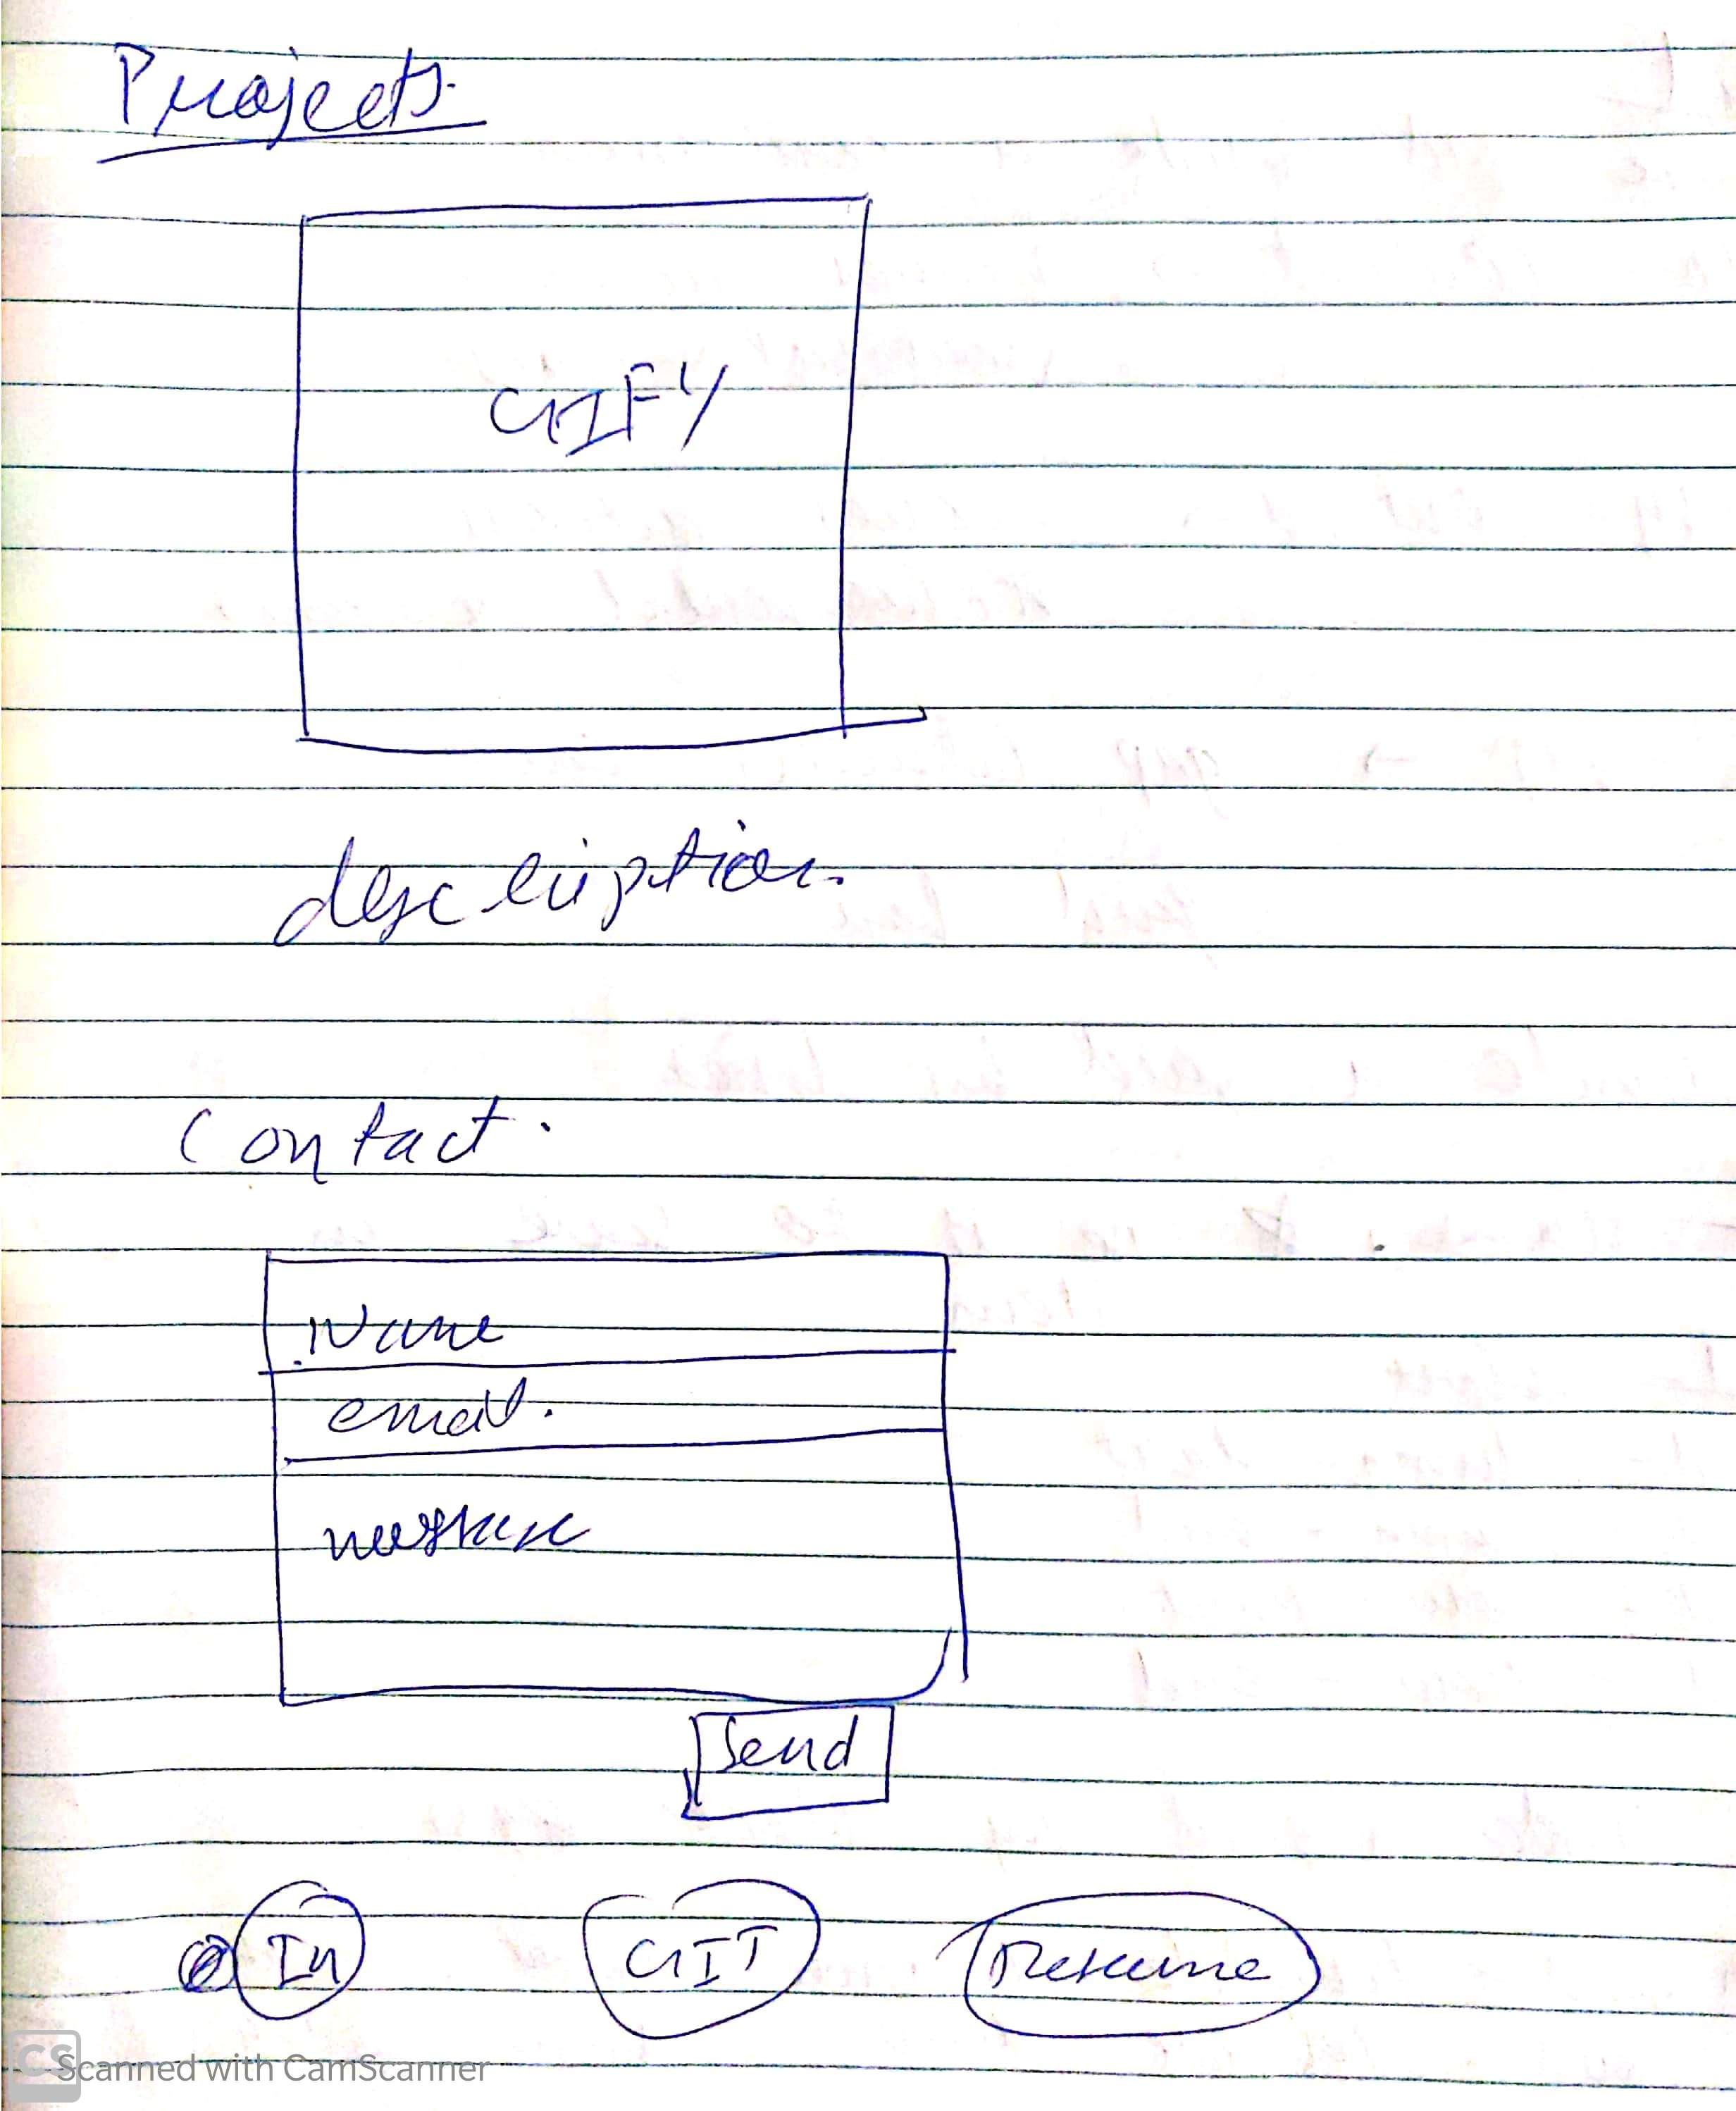 Projects.
GIFY
description.
Contact.
Name
email.
message
Send
In
GIT
Resume
CS
Scanned with CamScanner